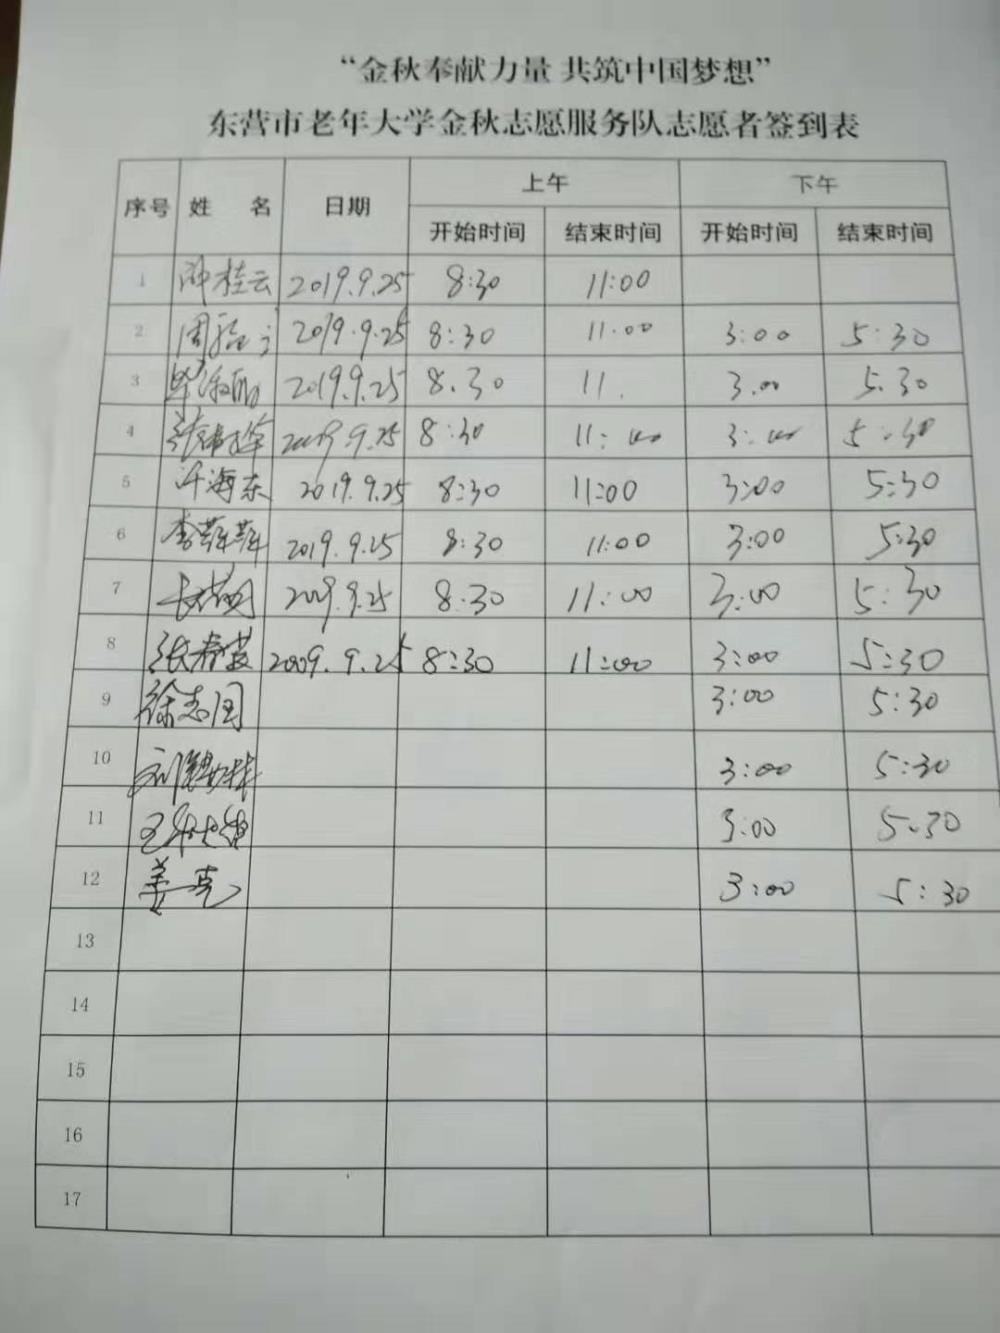 “金秋奉献力量 共筑中国梦想”
东营市老年大学金秋志愿服务队志愿者签到表
序号 姓 名 日期 上午 下午
开始时间 结束时间 开始时间 结束时间
1 桂云 2019.9.25 8:30 11:00
2 周 2019.9.25 8:30 11.00 3:00 5:30
3 2019.9.25 8.30 11. 3.00 5.30
4 张 2019.9.25 8:30 11:00 3:00 5.30
5 海东 2019.9.25 8:30 11:00 3:00 5:30
6 李菲菲 2019.9.25 8:30 11:00 3:00 5:30
7 2019.9.25 8.30 11:00 3:00 5:30
8 张春 2009.9.25 8:30 11:00 3:00 5:30
9 徐志国 3:00 5:30
10 刘 3:00 5:30
11 王 3:00 5.30
12 姜亮 3:00 5:30
13
14
15
16
17